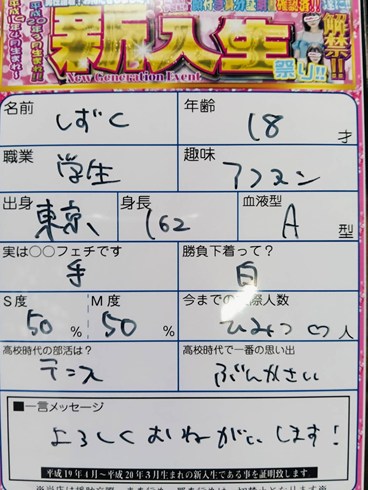 平成20年3月生まれ!!
新入生
解禁!!
New Generation Event
祭り!!
名前 年齢
しずく 18才
職業 趣味
学生
出身 身長 血液型
東京 162 A型
実は○○フェチです 勝負下着って?
手 白
S度 M度
50% 50% ひみつ♡人
高校時代の部活は? 高校時代で一番の思い出
テニス ぶんかさい
■一言メッセージ
よろしくおねがいします!
平成19年4月〜平成20年3月生まれの新入生である事を証明致します